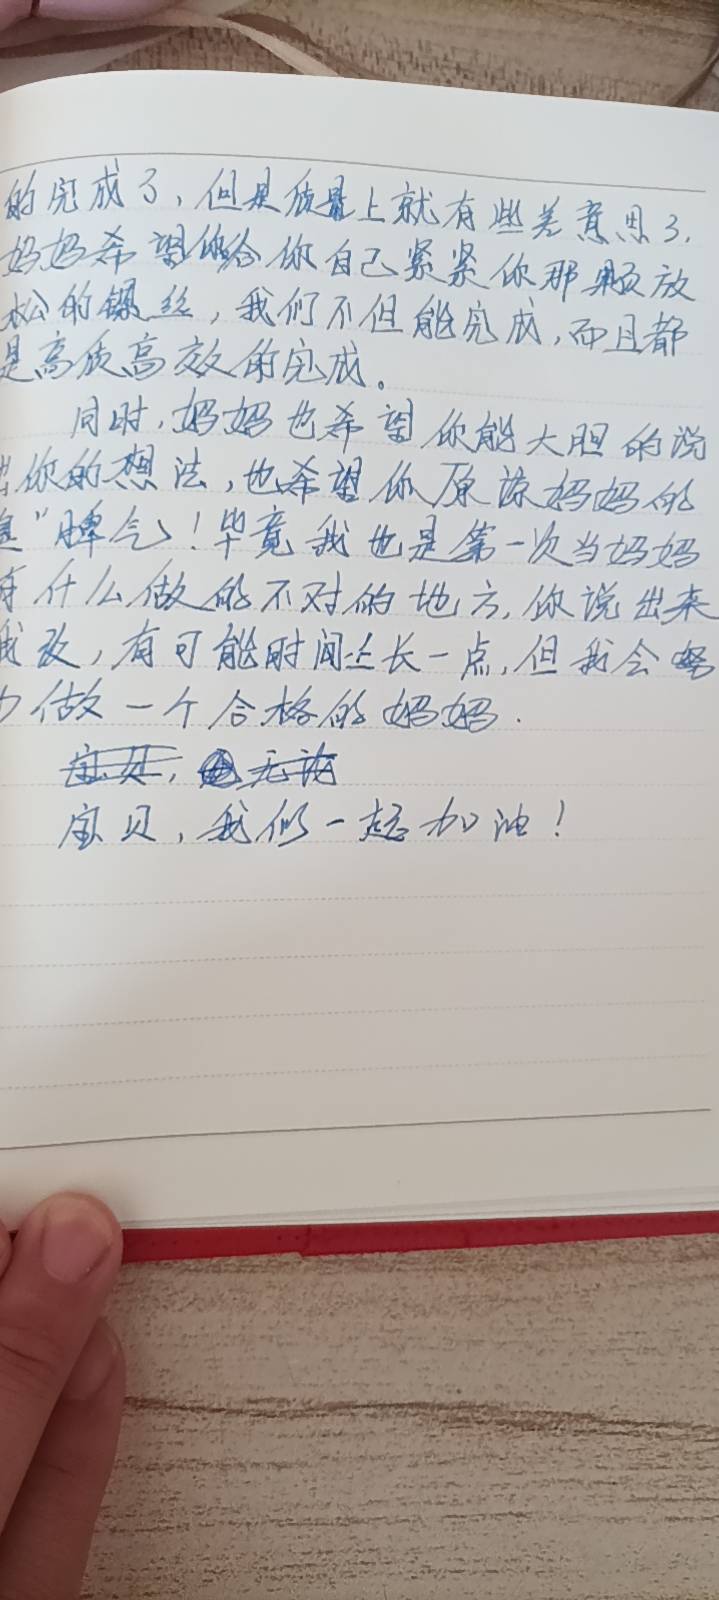 的完成了，但是质量上就有些差意思了，
妈妈希望你给你自己紧紧你那颗放
松的螺丝，我们不但能完成，而且都
是高质高效的完成。
同时，妈妈也希望你能大胆的说
出你的想法，也希望你原谅妈妈的
"脾气！毕竟我也是第一次当妈妈
有什么做的不对的地方，你说出来
我改，有可能时间还长一点，但我会努
力做一个合格的妈妈.
宝贝，无论
宝贝，我们一起加油！